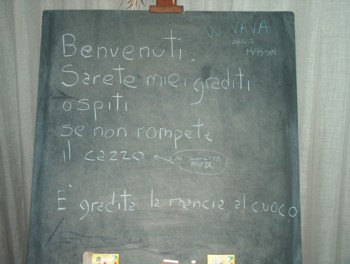 Benvenuti.
Sarete miei graditi
ospiti
se non rompete
il cazzo
E' gradita la mancia al cuoco